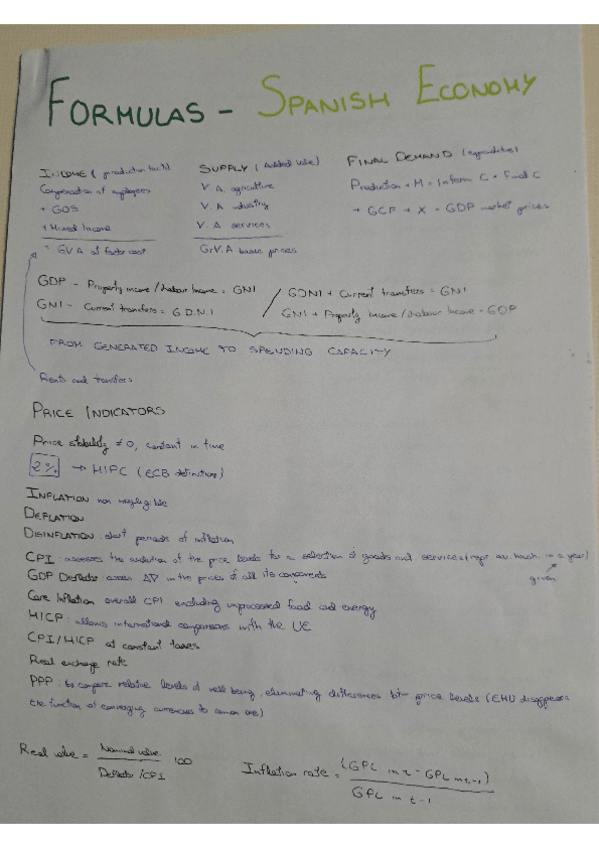 FORMULAS - SPANISH ECONOMY
INCOME (production factb)
Compensation of employees
+ GOS
+ Mixed Income
= GVA at factor cost
SUPPLY (Added value)
V.A. agriculture
V.A. industry
V.A. services
GVA basic prices
FINAL DEMAND (expenditure)
Production + M = Interm C + Final C
+ GCF + X = GDP market prices
GDP - Property income / Labour Income = GNI / GDNI + Current transfers = GNI
GNI - Current transfers = G.D.N.I / GNI + Property income / Labour Income = GDP
FROM GENERATED INCOME TO SPENDING CAPACITY
Rents and transfers
PRICE INDICATORS
Price stability ≠ 0, constant in time
2% → HIPC (ECB definition)
INFLATION non negligible
DEFLATION
DISINFLATION: short periods of inflation
CPI: assesses the evolution of the price levels for a selection of goods and services (repr av. hash. in a year)
given
GDP Deflator: asses ΔP in the prices of all its components
Core Inflation overall CPI excluding unprocessed food and energy
HICP: allows international comparisons with the UE
CPI/HICP at constant taxes
Real exchange rate
PPP: to compare relative levels of well being, eliminating differences btw price levels (EMU disappears
the function of converging currencies to common one)
Real value = Nominal value / Deflator/CPI 100
Inflation rate = (GPL in t - GPL in t-1) / GPL in t-1